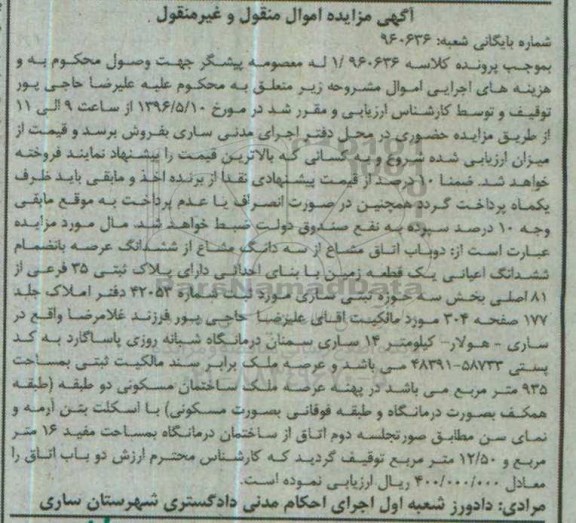 آگهی مزایده اموال منقول و غیرمنقول
شماره بایگانی شعبه: ۹۶۰۶۳۶
بموجب پرونده کلاسه ۹۶۰۶۳۶ /۱ له معصومه پیشگر جهت وصول محکوم به و
هزینه های اجرایی اموال مشروحه زیر متعلق به محکوم علیه علیرضا حاجی پور
توقیف و توسط کارشناس ارزیابی و مقرر شد در مورخ ۱۳۹۶/۵/۱۰ از ساعت ۹ الی ۱۱
از طریق مزایده حضوری در محل دفتر اجرای مدنی ساری بفروش برسد و قیمت از
میزان ارزیابی شده شروع و به کسانی که بالاترین قیمت را پیشنهاد نمایند فروخته
خواهد شد. ضمنا ۱۰ درصد از قیمت پیشنهادی نقدا از برنده اخذ و مابقی باید ظرف
یکماه پرداخت گردد همچنین در صورت انصراف یا عدم پرداخت به موقع مابقی
وجه ۱۰ درصد سپرده به نفع صندوق دولت ضبط خواهد شد. مال مورد مزایده
عبارت است از: دوباب اتاق مشاع از سه دانگ مشاع از ششدانگ عرصه بانضمام
ششدانگ اعیانی یک قطعه زمین با بنای احداثی دارای پلاک ثبتی ۳۵ فرعی از
۸۱ اصلی بخش سه حوزه ثبتی ساری مورد ثبت شماره ۴۲۰۵۳ دفتر املاک جلد
ParsNamadData
۱۷۷ صفحه ۳۰۴ مورد مالکیت آقای علیرضا حاجی پور فرزند غلامرضا واقع در
ساری - هولار- کیلومتر ۱۴ ساری سمنان درمانگاه شبانه روزی پاساگارد به کد
پستی ۵۸۷۳۳-۴۸۳۹۱ می باشد و عرصه ملک برابر سند مالکیت ثبتی بمساحت
۹۳۵ متر مربع می باشد در پهنه عرصه ملک ساختمان مسکونی دو طبقه (طبقه
همکف بصورت درمانگاه و طبقه فوقانی بصورت مسکونی) با اسکلت بتن آرمه و
نمای سن مطابق صورتجلسه دوم اتاق از ساختمان درمانگاه بمساحت مفید ۱۶ متر
مربع و ۱۲/۵۰ متر مربع توقیف گردید که کارشناس محترم ارزش دو باب اتاق را
معادل ۴۰۰/۰۰۰/۰۰۰ ریال ارزیابی نموده است.
مرادی: دادورز شعبه اول اجرای احکام مدنی دادگستری شهرستان ساری